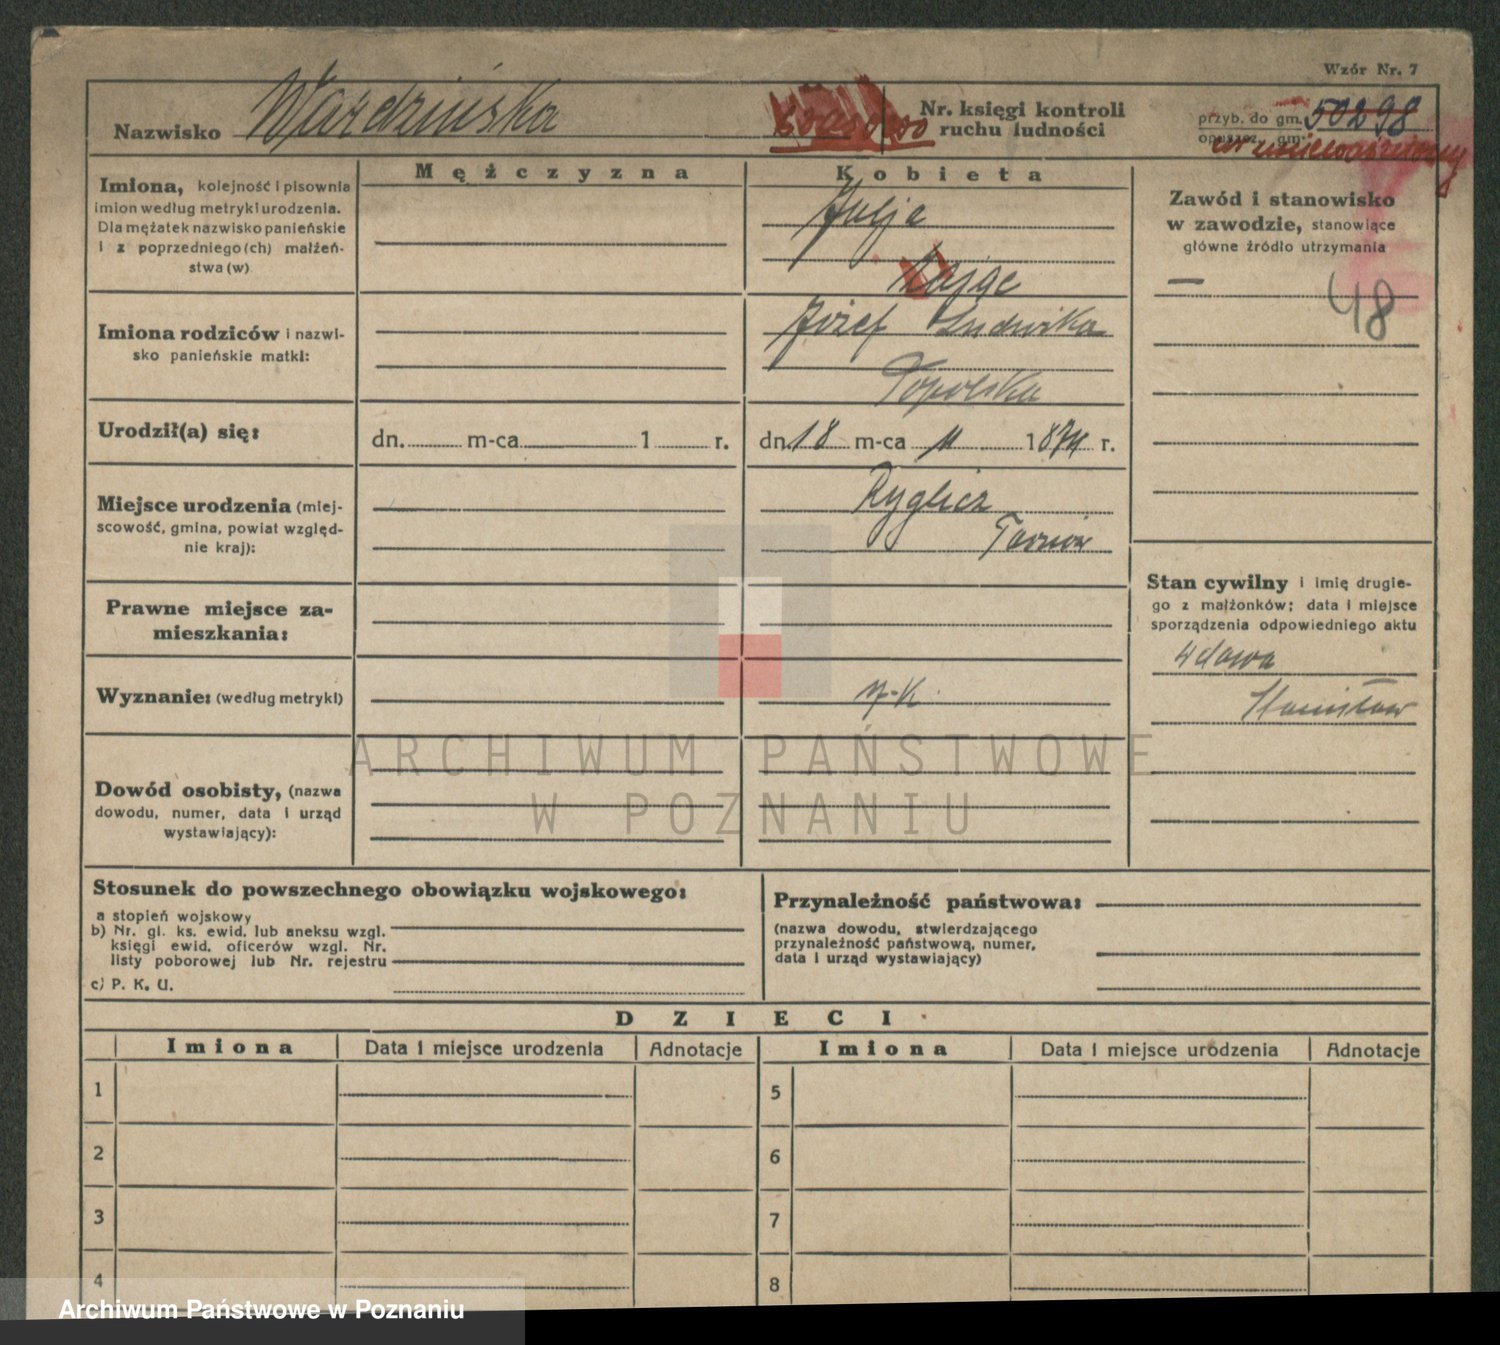 Wzór Nr. 7
Nazwisko Wardzińska
Nr. księgi kontroli
ruchu ludności
przyb. do gm. 50298
opuszcz. gm.
unieważniony
Imiona, kolejność i pisownia
imion według metryki urodzenia.
Dla mężatek nazwisko panieńskie
i z poprzedniego(ch) małżeń-
stwa(w)
Mężczyzna
Kobieta
Julja
Zając
Imiona rodziców i nazwi-
sko panieńskie matki:
Józef Ludwika
Topolska
Urodził(a) się:
dn. m-ca 1 r.
dn. 18 m-ca 11 1874 r.
Miejsce urodzenia (miej-
scowość, gmina, powiat względ-
nie kraj):
Ryglice
Tarnów
Prawne miejsce za-
mieszkania:
Wyznanie: (według metryki)
r-k.
Dowód osobisty, (nazwa
dowodu, numer, data i urząd
wystawiający):
Zawód i stanowisko
w zawodzie, stanowiące
główne źródło utrzymania
—
48
Stan cywilny i imię drugie-
go z małżonków; data i miejsce
sporządzenia odpowiedniego aktu
wdowa
Stanisław
Stosunek do powszechnego obowiązku wojskowego:
a stopień wojskowy
b) Nr. gl. ks. ewid. lub aneksu wzgl.
księgi ewid. oficerów wzgl. Nr.
listy poborowej lub Nr. rejestru
c) P. K. U.
Przynależność państwowa:
(nazwa dowodu, stwierdzającego
przynależność państwową, numer,
data i urząd wystawiający)
DZIECI
Imiona Data i miejsce urodzenia Adnotacje Imiona Data i miejsce urodzenia Adnotacje
1 5
2 6
3 7
4 8
ARCHIWUM PAŃSTWOWE
W POZNANIU
Archiwum Państwowe w Poznaniu